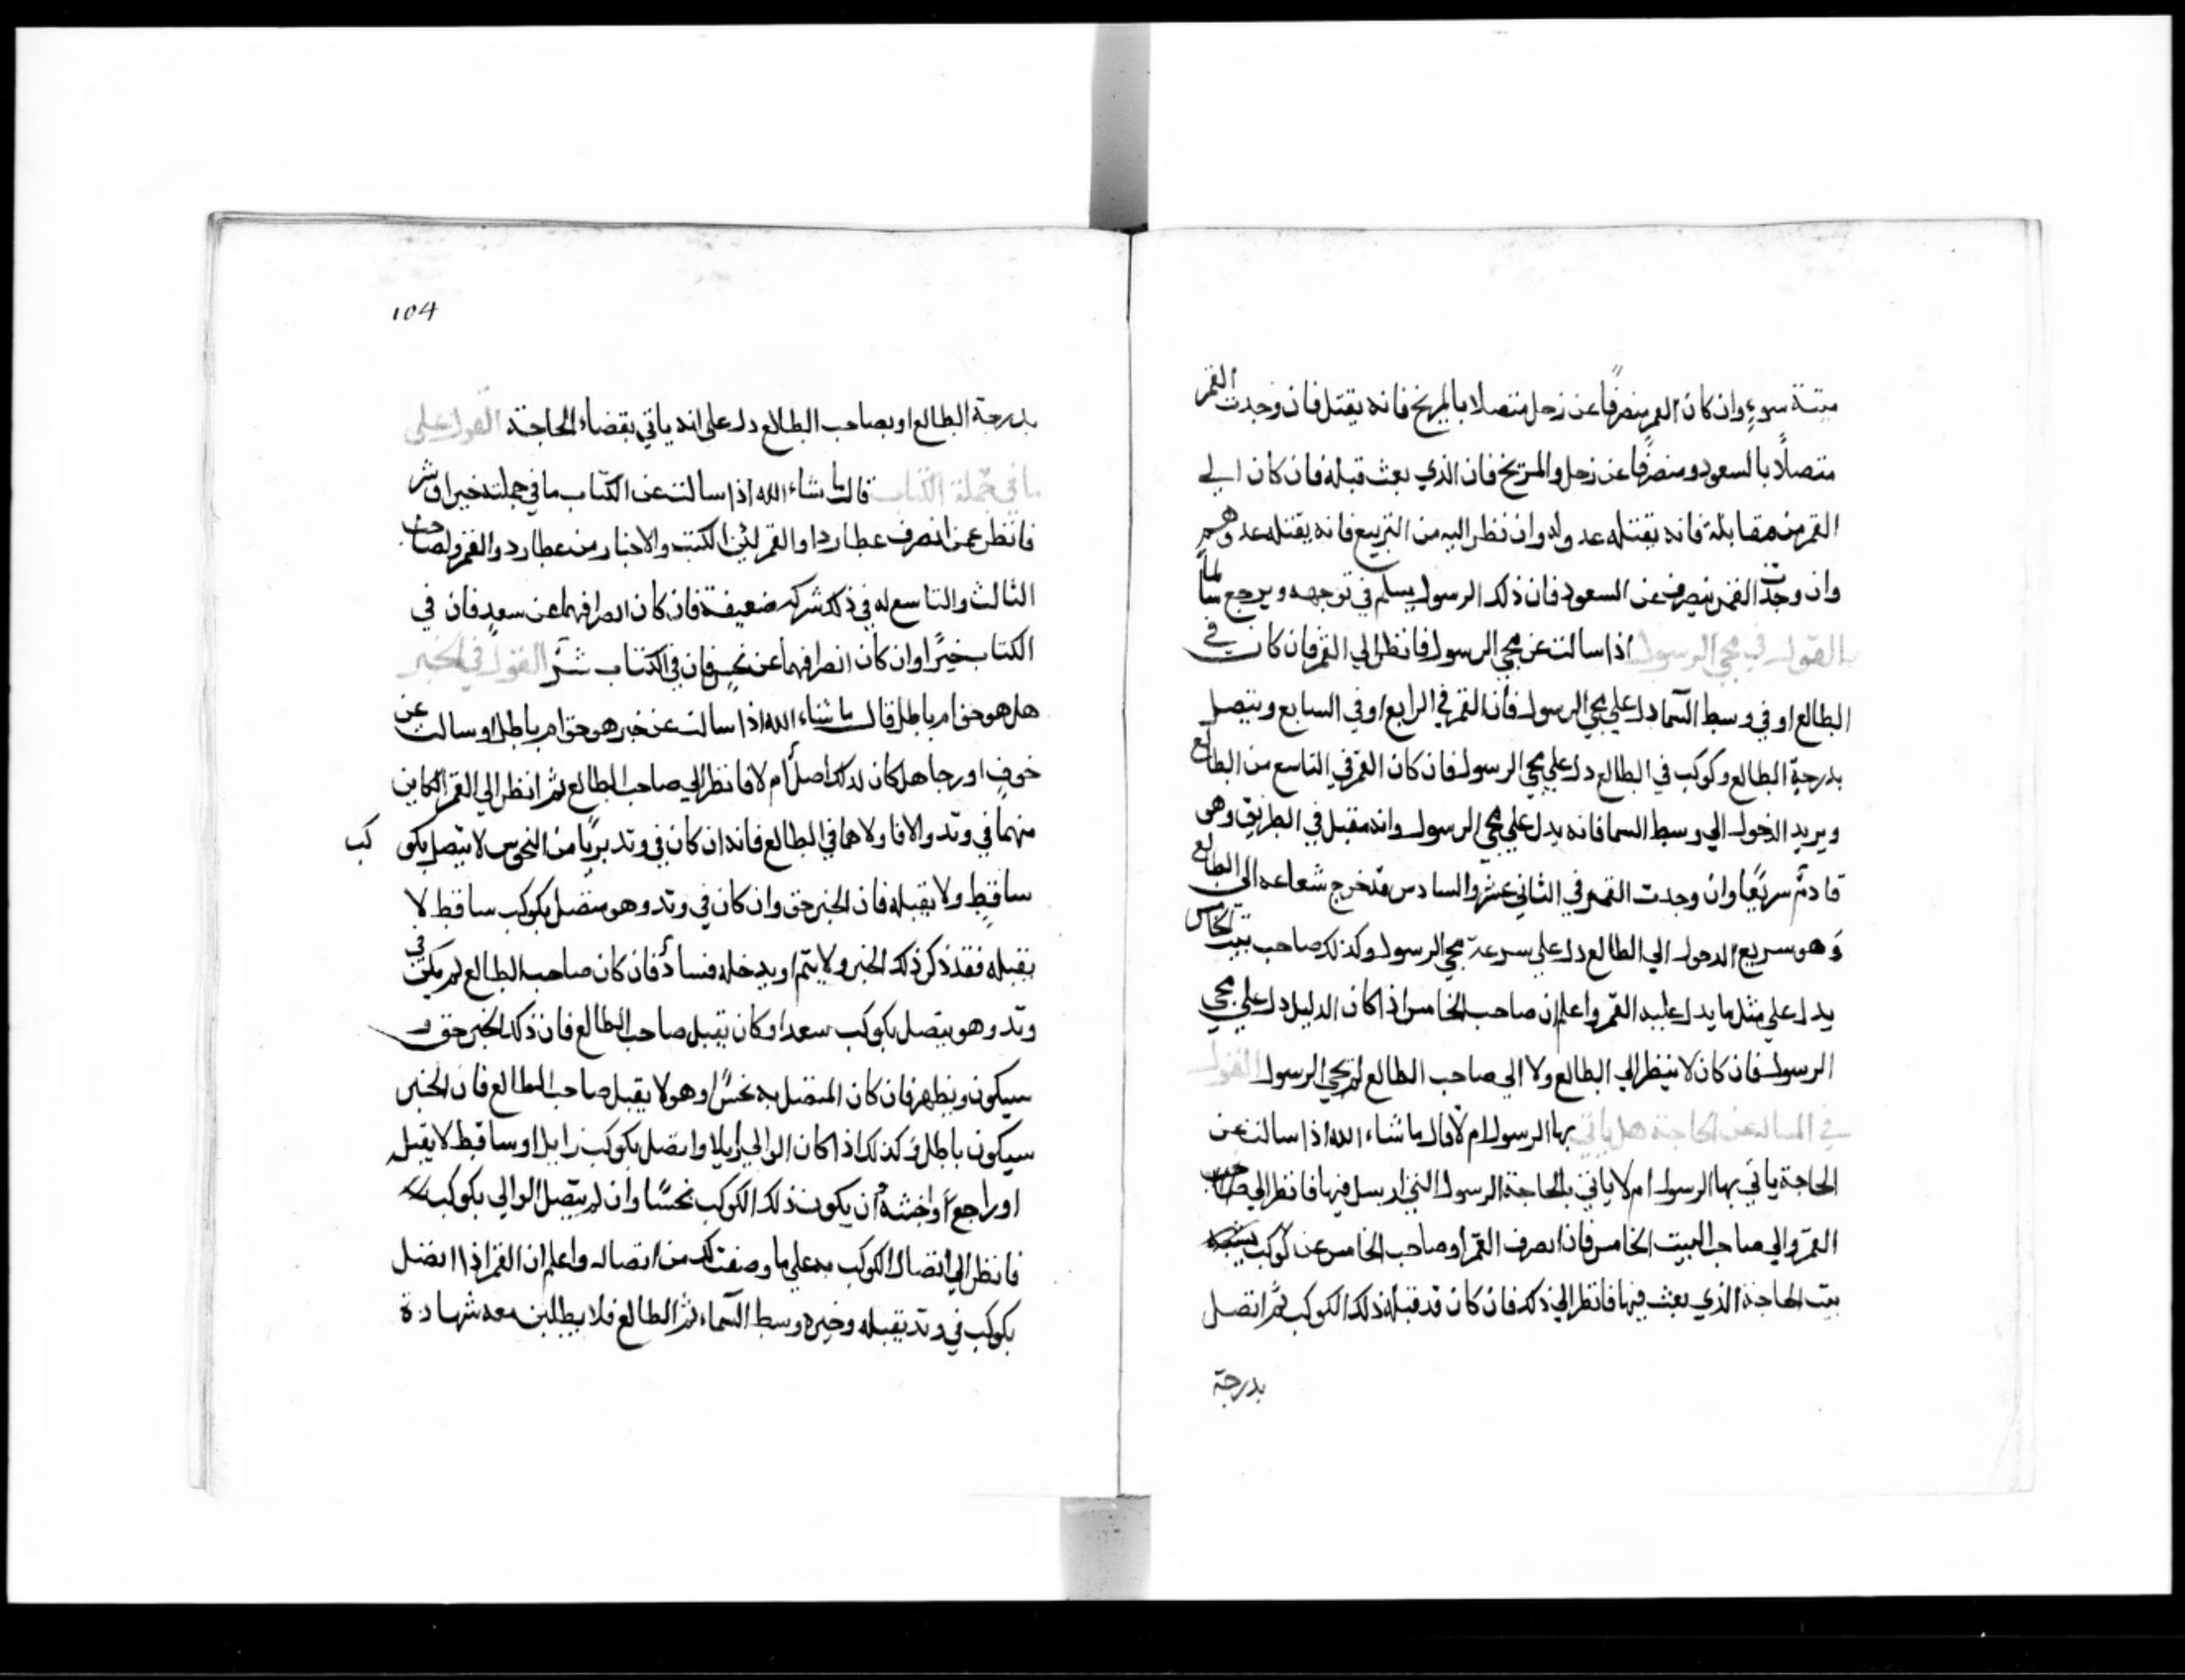 ميتة سوء وان كان القمر منصرفا عن زحل متصلا بالمريخ فانه يقتل فان وجدت القمر
متصلا بالسعود ومنصرفا عن زحل والمريخ فان الذي بعث قبله فان كان الي
القمر من مقابلة فانه يقتله عدو له وان نظر اليه من التربيع فانه يقتله عدوهم
وان وجدت القمر ينصرف عن السعود فان ذلك الرسول يسلم في توجهه ويرجع سالما
القول في مجي الرسول اذا سالت عن مجي الرسول فانظر الي القمر فان كان في
الطالع او في وسط السما دل علي مجي الرسول فان القمر في الرابع او في السابع ويتصل
بدرجة الطالع وكوكب في الطالع دل علي مجي الرسول فان كان القمر في التاسع من الطالع
ويريد الدخول الي وسط السما فانه يدل علي مجي الرسول وانه مقبل في الطريق وهو
قادم سريعا وان وجدت القمر في الثاني عشر والسادس قد خرج شعاعه الي الطالع
وهو سريع الدخول الي الطالع دل علي سرعة مجي الرسول وكذلك صاحب بيت الخامس
يدل علي مثل ما يدل عليه القمر واعلم ان صاحب الخامس اذا كان الدليل دل علي مجي
الرسول فان كان لا ينظر الي الطالع ولا الي صاحب الطالع لم يجي الرسول القول
في المسالة عن الحاجة هل ياتي بها الرسول ام لا قال ما شاء الله اذا سالت عن
الحاجة ياتي بها الرسول ام لا ياتي بالحاجة الرسول التي ارسل فيها فانظر الي صاحب
القمر والي صاحب البيت الخامس فان انصرف القمر او صاحب الخامس عن كوكب
بيت الحاجة الذي بعث فيها فانظر الي ذلك فان كان قد قبله ذلك الكوكب ثم اتصل
بدرجة
104
بدرجة الطالع او بصاحب الطالع دل على انه ياتي بقضاء الحاجة القول على
ما في جملة الكتاب قال ما شاء الله اذا سالت عن الكتاب ما في جملته خير او شر
فانظر عمن انصرف عطارد او القمر لئن الكتب والاخبار من عطارد والقمر ولصاحب
الثالث والتاسع له في ذلك شركة ضعيفة فان كان انصرافهما عن سعد فان في
الكتاب خيرا وان كان انصرافهما عن نحس فان في الكتاب شر القول في الخبر
هل هو حق ام باطل قال ما شاء الله اذا سالت عن خبر هو حق ام باطل او سالت عن
خوف او رجا هل كان لذلك اصل ام لا فانظر الي صاحب الطالع ثم انظر الي القمر الكاين
منهما في وتد والا فاولاهما في الطالع فانه ان كان في وتد بريا من النحوس لا يتصل بكو كب
ساقط ولا يقبله فان الخبر حق وان كان في وتد وهو متصل بكوكب ساقط لا
يقبله فقد ذكر ذلك الخبر ولا يتم او يدخله فساد فان كان صاحب الطالع لم يكن في
وتد وهو يتصل بكوكب سعد او كان يقبل صاحب الطالع فان ذلك الخبر حق و
سيكون ويظهر فان كان المتصل به نحسا وهو لا يقبل صاحب الطالع فان الخبر
سيكون باطل وكذلك اذا كان الوالي زايلا واتصل بكوكب زايل او ساقط لا يقبله
او راجعا واخبثه ان يكون ذلك الكوكب نحسا وان لم يتصل الوالي بكوكب
فانظر الي اتصال الكوكب به علي ما وصفت لك من اتصاله واعلم ان القمر اذا اتصل
بكوكب في وتد يقبله وخيره وسط السماء ثم الطالع فلا يطلبن معه شهادة